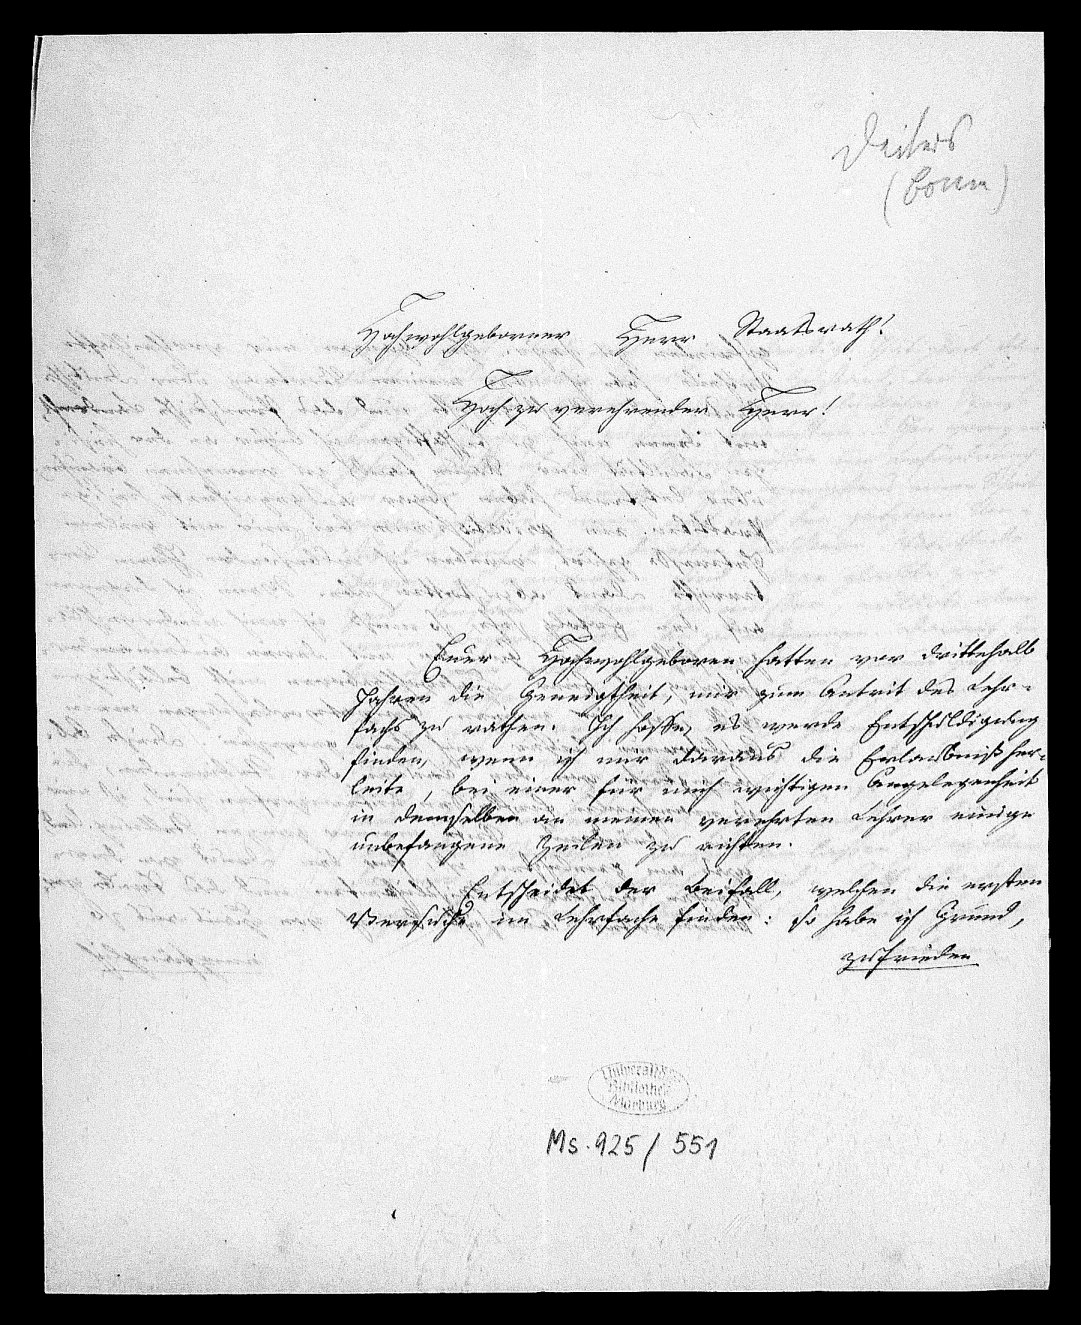 Deiters
(Bonn)
Hochwohlgeborner Herr Staatsrath!
Hoch zu verehrender Herr!
Euer Hochwohlgeboren hatten vor drittehalb
Jahren die Geneigtheit, mir zum Antrit des Lehr-
fachs zu rathen. Ich hoffe, es werde Entschuldigung
finden, wenn ich mir daraus die Erlaubniß her-
leite, bei einer für mich wichtigen Angelegenheit
in demselben an meinen verehrten Lehrer einige
unbefangene Zeilen zu richten.
Entscheidet der Beifall, welchen die ersten
Versuche im Lehrfache finden: so habe ich Grund,
zufrieden
Universitäts
Bibliothek
Marburg
Ms. 925/551